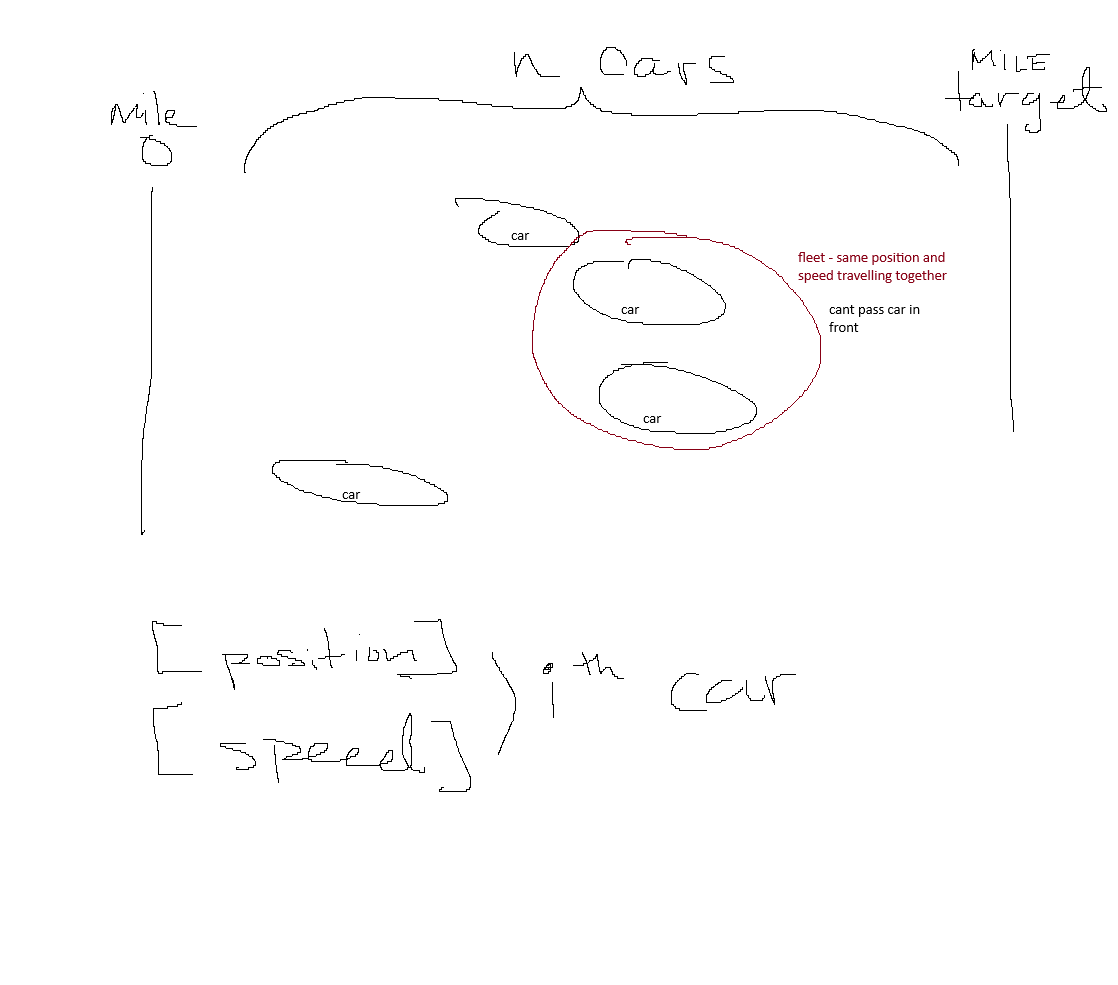 n Cars
MILE
target
Mile
0
car
fleet - same position and
speed travelling together
car
cant pass car in
front
car
car
[position]
[speed]
) ith car